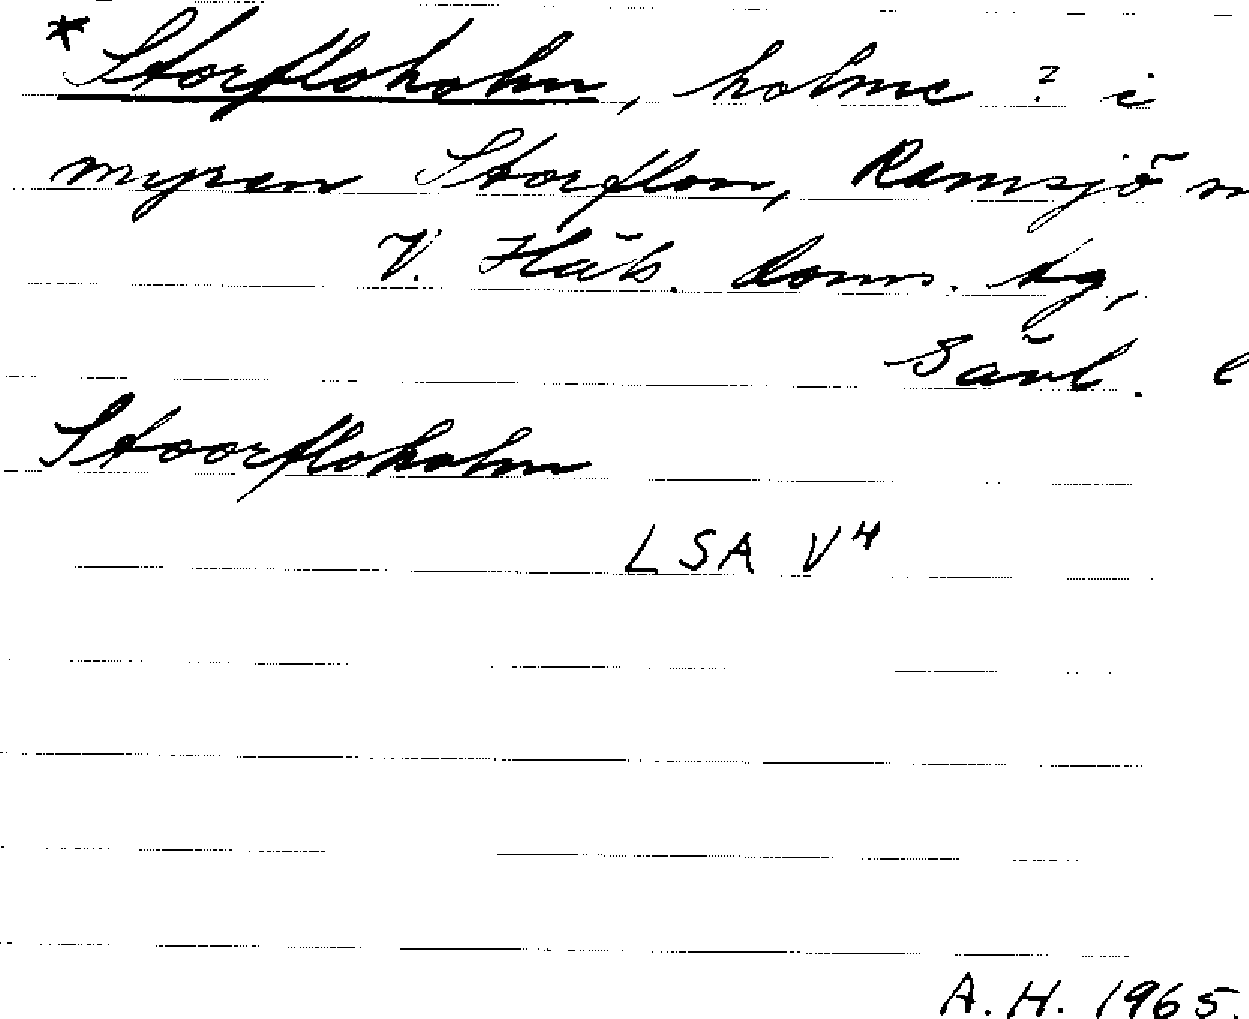 *Storfloholm, holme ? i
myren Storflon, Ramsjö
V. Häls. doms. tg,
Gävl.
Stoorfloholm
LSA V4
A.H. 1965.